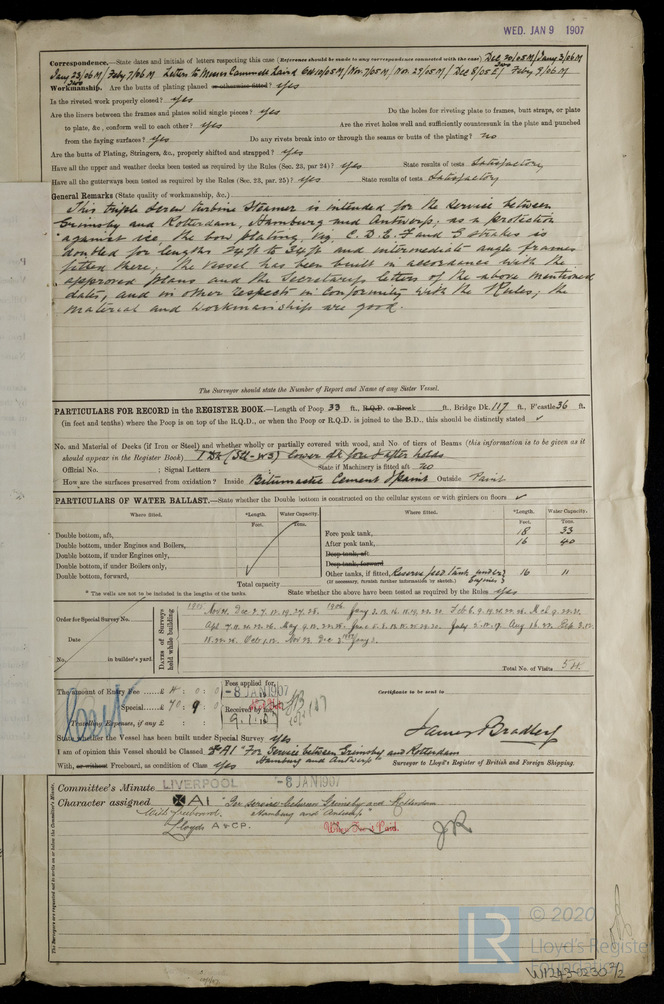 WED. JAN 9 1907
Correspondence.—State dates and initials of letters respecting this case (Reference should be made to any correspondence connected with the case) Dec 20/05 M/Jany 3/06 M
Jany 23/06 M/Feby 7/06 M Letters to Messrs Cammell Laird Oct 10/05 M/Nov 7/05 M/Nov. 29/05 M/Dec 8/05 E/Feby 9/06 M
Workmanship. Are the butts of plating planed or otherwise fitted? yes
Is the riveted work properly closed? yes
Are the liners between the frames and plates solid single pieces? yes Do the holes for riveting plates to frames, butt straps, or plate
to plate, &c., conform well to each other? yes Are the rivet holes well and sufficiently countersunk in the plate and punched
from the faying surfaces? yes Do any rivets break into or through the seams or butts of the plating? no
Are the butts of Plating, Stringers, &c., properly shifted and strapped? yes
Have all the upper and weather decks been tested as required by the Rules (Sec. 23, par 24)? yes State results of tests Satisfactory
Have all the gutterways been tested as required by the Rules (Sec. 23, par. 25)? yes State results of tests Satisfactory
General Remarks (State quality of workmanship, &c.)
This triple screw turbine Steamer is intended for the service between
Grimsby and Rotterdam, Hamburg and Antwerp; as a protection
against ice, the bow plating, viz. C. D. E. F and G strakes is
doubled for lengths 74 ft to 34 ft and intermediate angle frames
fitted there; the vessel has been built in accordance with the
approved plans and the Secretarys letters of the above mentioned
dates, and in other respects in conformity with the Rules; the
material and workmanship are good.
The Surveyor should state the Number of Report and Name of any Sister Vessel.
PARTICULARS FOR RECORD in the REGISTER BOOK.—Length of Poop 33 ft., R.Q.D. or Break ft., Bridge Dk. 117 ft., F'castle 36 ft.
(in feet and tenths) where the Poop is on top of the R.Q.D., or when the Poop or R.Q.D. is joined to the B.D., this should be distinctly stated
No. and Material of Decks (if Iron or Steel) and whether wholly or partially covered with wood, and No. of tiers of Beams (this information is to be given as it
should appear in the Register Book) 1 Dk (Stl-WS) lower dk fore & after holds
Official No. ; Signal Letters State if Machinery is fitted aft no
How are the surfaces preserved from oxidation? Inside Bitumastic Cement & paint Outside Paint
PARTICULARS OF WATER BALLAST.—State whether the Double bottom is constructed on the cellular system or with girders on floors
Where fitted. *Length. Water Capacity. Where fitted. *Length. Water Capacity.
Feet. Tons. Feet. Tons.
Double bottom, aft, Fore peak tank, 18 33
Double bottom, under Engines and Boilers, After peak tank, 16 40
Double bottom, if under Engines only, Deep tank, aft
Double bottom, if under Boilers only, Deep tank, forward
Double bottom, forward, Other tanks, if fitted, Reserve feed tank under engines 16 11
Total capacity (If necessary, furnish further information by sketch.)
* The wells are not to be included in the lengths of the tanks. State whether the above have been tested as required by the Rules yes
Order for Special Survey No.
Date
No. in builder's yard
DATES of Surveys held while building
Total No. of Visits 54
The amount of Entry Fee £ 4 : 0 : 0
Special £ 70 : 9 : 0
Travelling Expenses, if any £ : :
Fees applied for,
-8 JAN 1907
Received by me,
9.1.07
Certificate to be sent to
James Bradley
State whether the Vessel has been built under Special Survey yes
I am of opinion this Vessel should be Classed A1 "For Service between Grimsby and Rotterdam
Hamburg and Antwerp"
With, or without Freeboard, as condition of Class yes
Surveyor to Lloyd's Register of British and Foreign Shipping.
Committee's Minute LIVERPOOL -8 JAN 1907
Character assigned A1 "For service between Grimsby and Rotterdam
With freeboard. Hamburg and Antwerp"
Lloyds A & CP. When Fee is Paid.
JR
The Surveyors are requested not to write on or below the Committee's Minute.
© 2020
Lloyd's Register
Foundation
W1243-0230 2/2